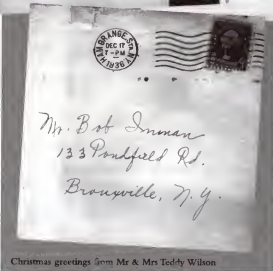 DEC 17
7-PM
1936
Mr. Bob Inman
133 Pondfield Rd.
Bronxville, N.Y.
Christmas greetings from Mr & Mrs Teddy Wilson